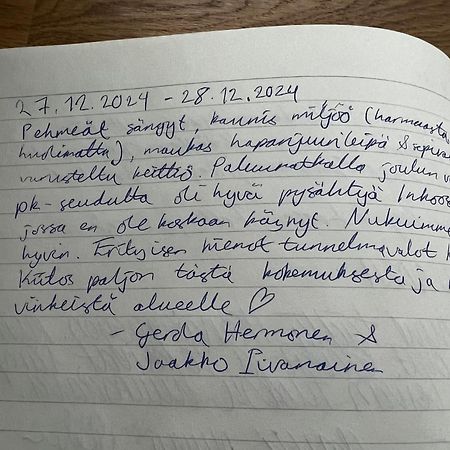 27.12.2024 - 28.12.2024
Pehmeät sängyt, kaunis miljöö (harmaasta
huolimatta), maukas hapanjuurileipä &
varusteltu keittiö. Paluumatkalla joulun
pk-seudulta oli hyvä pysähtyä
jossa en ole koskaan käynyt. Nukuimme
hyvin. Erityisen hienot tunnelmavalot
Kiitos paljon tästä kokemuksesta ja
vinkeistä alueelle ♡
- Gerda Hermonen &
Jaakko Iivanainen